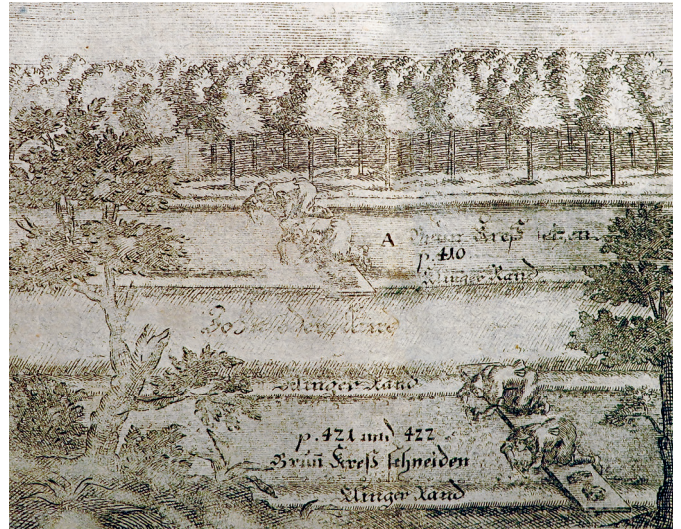 A Bruñ Kreß setzen.
p. 410
Klinger Rand
Klinger Rand
p. 421 und 422
Bruñ Kreß schneiden
Klinger Rand